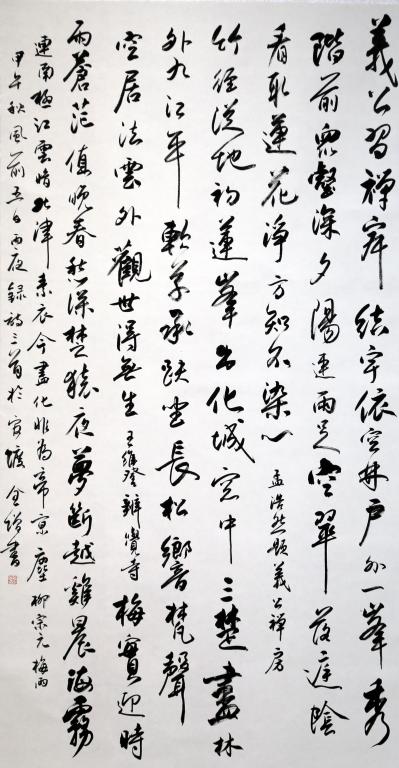 義公習禪寂結宇依空林戶外一峯秀
階前眾壑深夕陽連雨足空翠落庭陰
看取蓮花淨方知不染心孟浩然題義公禪房
竹徑從地初蓮峯出化城窓中三楚盡林
外九江平軟草承趺坐長松響梵聲
空居法雲外觀世得無生王維登辨覺寺梅實迎時
雨蒼茫值晚春愁深楚猿夜夢斷越雞晨海霧
連南極江雲暗北津素衣今盡化非為帝京塵柳宗元梅雨
甲午秋風前五日丙夜錄詩三首於書